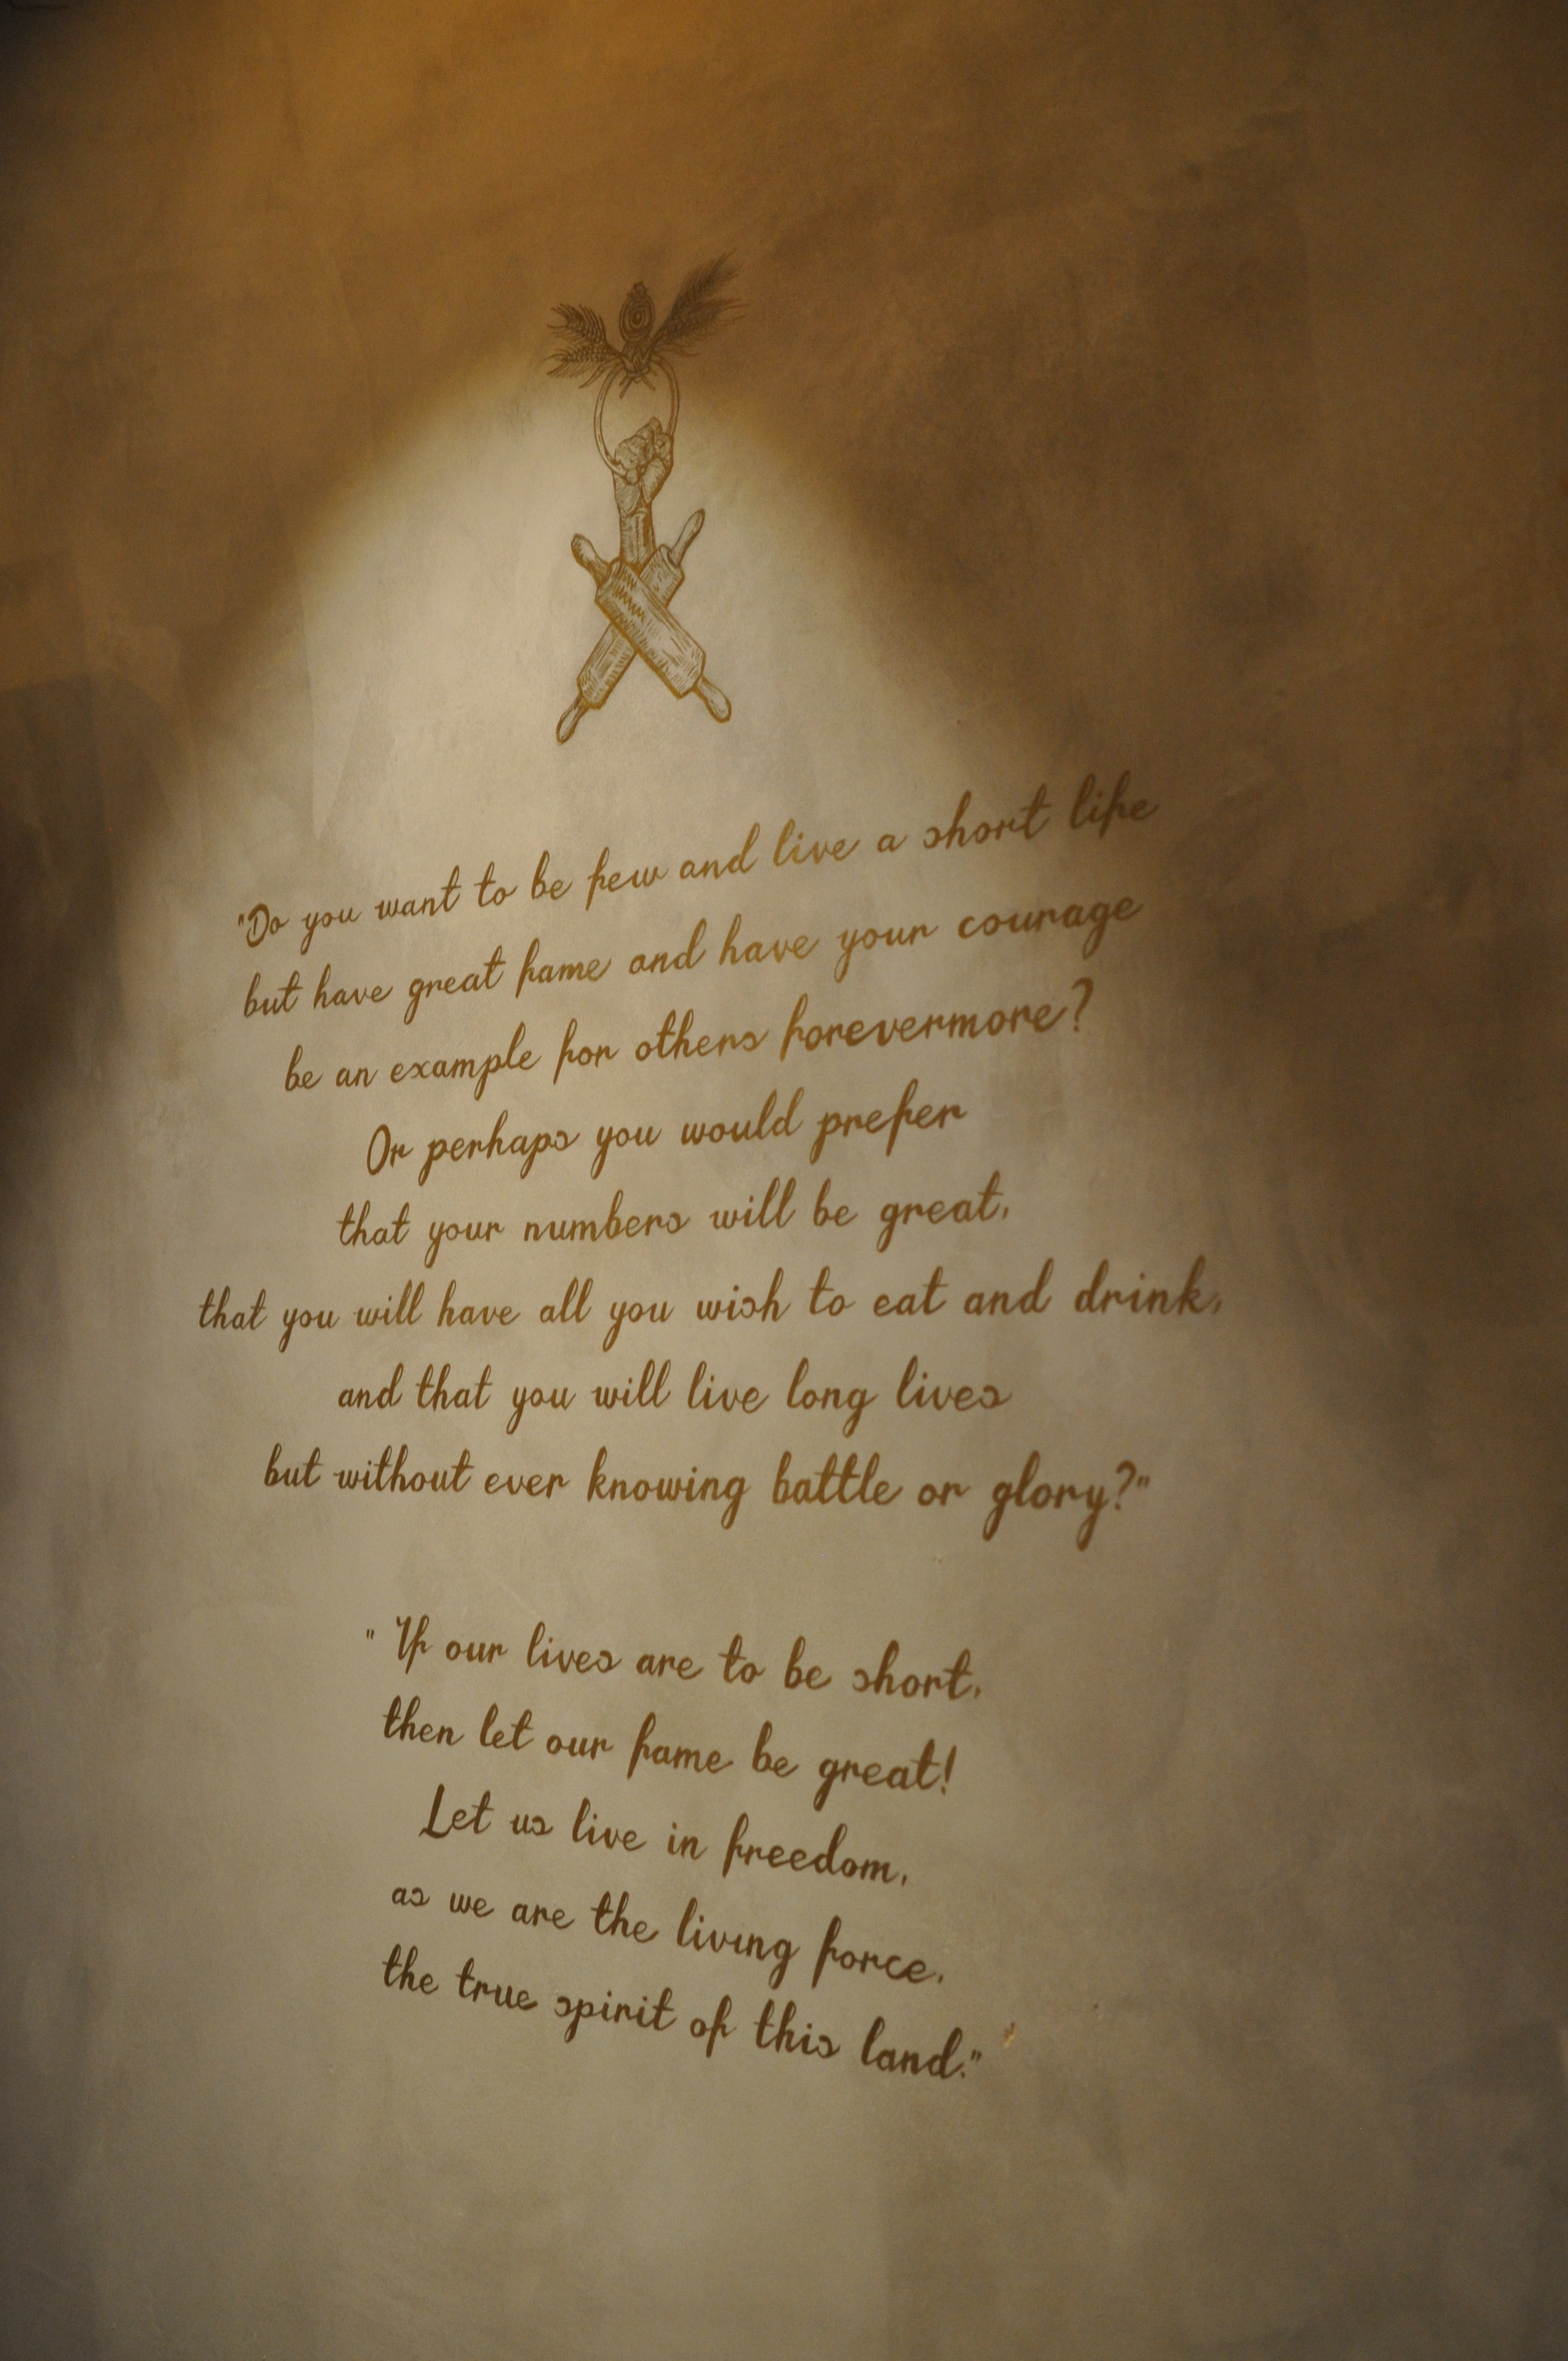 "Do you want to be few and live a short life
but have great fame and have your courage
be an example for others forevermore?
Or perhaps you would prefer
that your numbers will be great,
that you will have all you wish to eat and drink,
and that you will live long lives
but without ever knowing battle or glory?"
" If our lives are to be short,
then let our fame be great!
Let us live in freedom,
as we are the living force,
the true spirit of this land."